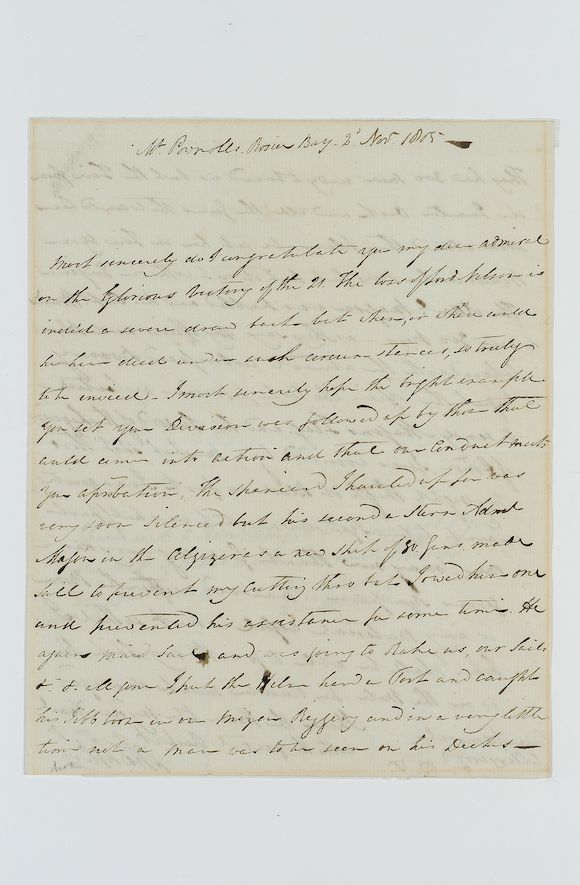 Mr. Pownolls. Rosier Bay. 2d Nov. 1805
Most sincerely do I congratulate you my dear admiral
on the Glorious Victory of the 21. The loss of Lord Nelson is
indeed a severe draw back but when, or where could
he have died under such circumstances, so truly
to be envied. I most sincerely hope the bright example
you set your Division was followed up by those that
could come into action and that our Conduct meets
your aprobation. The Spaniard I hauled up for was
very soon Silenced but his second a Stern Adml
in the Algizeras a new Ship of 80 Guns made
Sail to prevent my Cutting thro but I owed him one
and prevented his assistance for some time. He
again made Sail and was going to Rake us, our Sails
&. &. all gone I put the Helm hard a Port and caught
his Jibb boom in our Mizen Rigging and in a very little
time not a man was to be seen on his Decks